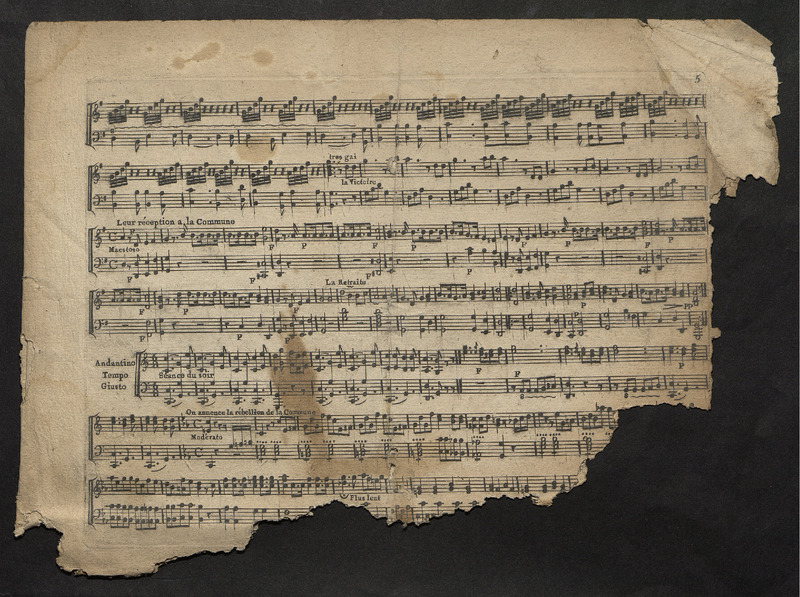 5
tres gai
la Victoire
Leur réception a la Commune
Maestoso
F P F P F P F P
F F F F P
La Retraite
F F F P
F F
Andantino
Tempo
Giusto
Séance du soir
F F P
On annonce la rébellion de la Commune
Moderato
Plus lent